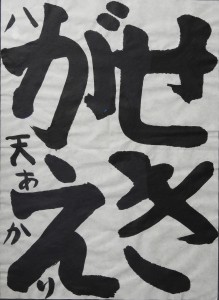 せき
がえ
八 天あかり